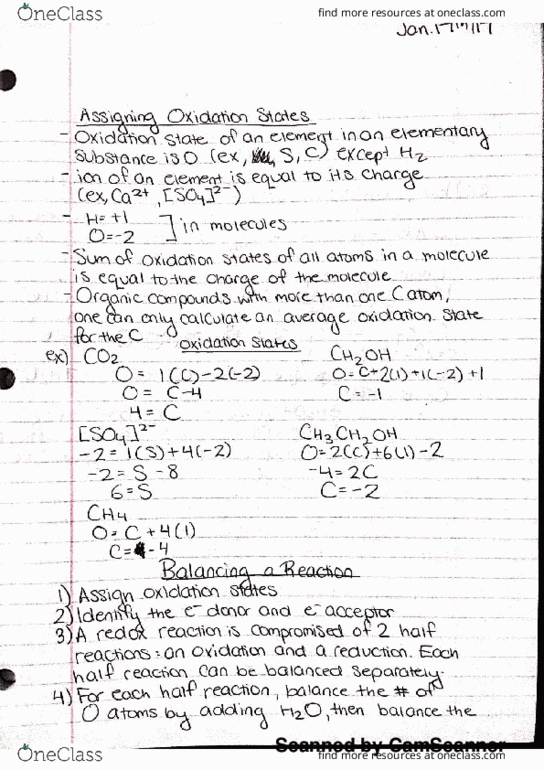 OneClass
find more resources at oneclass.com
Jan. 17th/17
Assigning Oxidation States
- Oxidation state of an element in an elementary
substance is 0 (ex, S, C) except H2
- ion of an element is equal to its charge
(ex, Ca2+, [SO4]2-)
- H= +1
O=-2 ] in molecules
- Sum of oxidation states of all atoms in a molecule
is equal to the charge of the molecule
- Organic compounds with more than one C atom,
one can only calculate an average oxidation state
for the C
oxidation states
ex) CO2
0 = 1(C)-2(-2)
0 = C-4
4 = C
CH2OH
0=C+2(1)+1(-2)+1
C=-1
[SO4]2-
-2 = 1(S)+4(-2)
-2 = S -8
6=S
CH3CH2OH
0=2(C)+6(1)-2
-4=2C
C=-2
CH4
0= C +4(1)
C= -4
Balancing a Reaction
1) Assign oxidation states
2) Identify the e- donor and e- acceptor
3) A redox reaction is compromised of 2 half
reactions: an oxidation and a reduction. Each
half reaction can be balanced separately.
4) For each half reaction, balance the # of
O atoms by adding H2O, then balance the
Scanned by CamScanner
OneClass
find more resources at oneclass.com